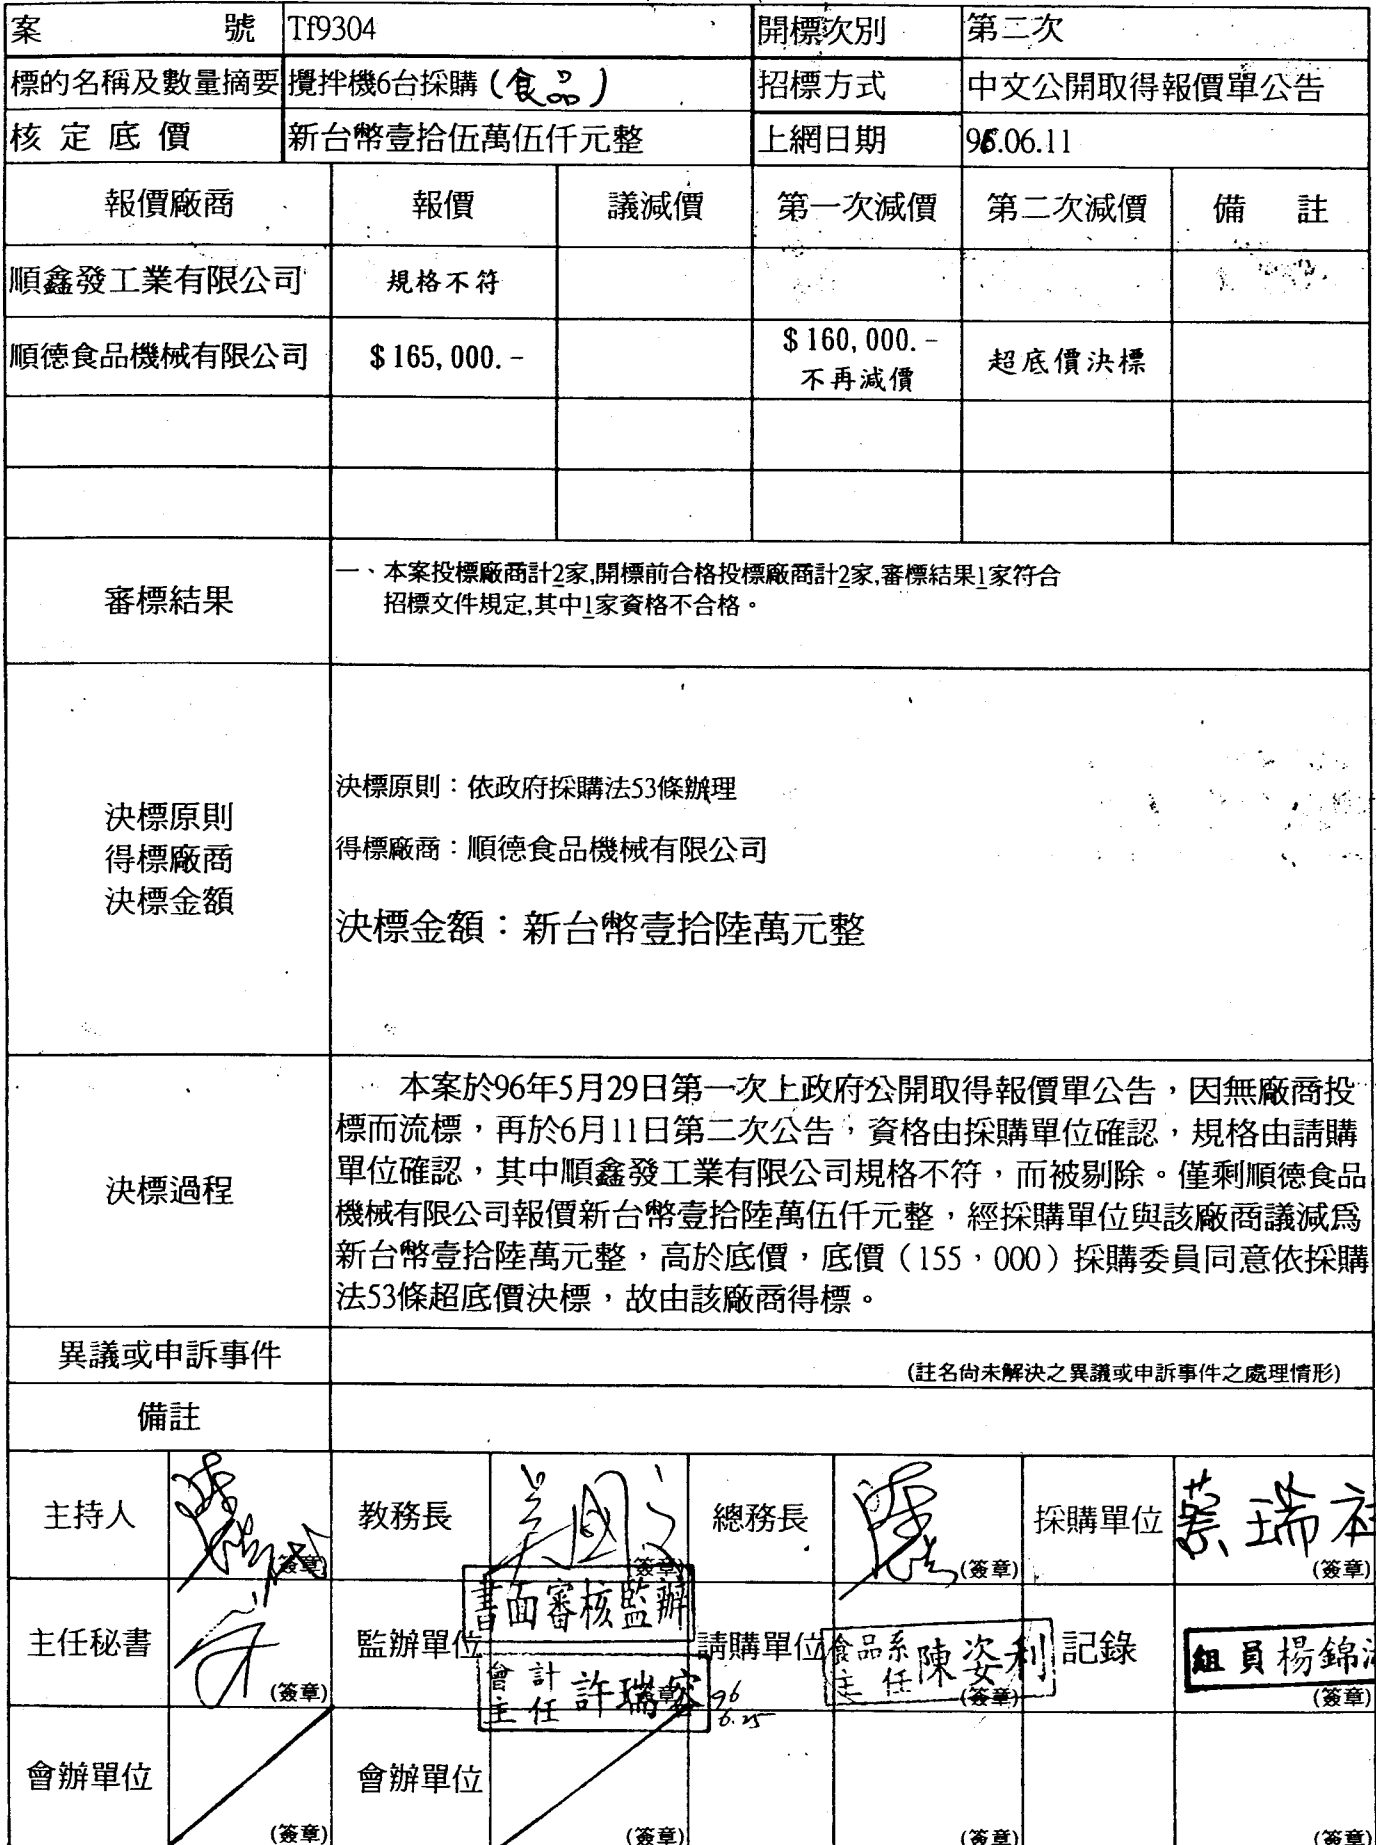 案 號 Tf9304 開標次別 第二次
標的名稱及數量摘要 攪拌機6台採購(食品) 招標方式 中文公開取得報價單公告
核定底價 新台幣壹拾伍萬伍仟元整 上網日期 96.06.11
報價廠商 報價 議減價 第一次減價 第二次減價 備 註
順鑫發工業有限公司 規格不符
順德食品機械有限公司 $165,000.- $160,000.- 不再減價 超底價決標
審標結果
一、本案投標廠商計2家,開標前合格投標廠商計2家,審標結果1家符合
招標文件規定,其中1家資格不合格。
決標原則
得標廠商
決標金額
決標原則：依政府採購法53條辦理
得標廠商：順德食品機械有限公司
決標金額：新台幣壹拾陸萬元整
決標過程
本案於96年5月29日第一次上政府公開取得報價單公告，因無廠商投
標而流標，再於6月11日第二次公告，資格由採購單位確認，規格由請購
單位確認，其中順鑫發工業有限公司規格不符，而被剔除。僅剩順德食品
機械有限公司報價新台幣壹拾陸萬伍仟元整，經採購單位與該廠商議減為
新台幣壹拾陸萬元整，高於底價，底價（155，000）採購委員同意依採購
法53條超底價決標，故由該廠商得標。
異議或申訴事件 (註名尚未解決之異議或申訴事件之處理情形)
備註
主持人 (簽章) 教務長 (簽章) 總務長 (簽章) 採購單位 蔡瑞 (簽章)
主任秘書 (簽章) 監辦單位 書面審核監辦 會計主任 許瑞容 (簽章) 96 6.25 請購單位 食品系主任 陳姿利 (簽章) 記錄 組員楊錦 (簽章)
會辦單位 (簽章) 會辦單位 (簽章) (簽章) (簽章)